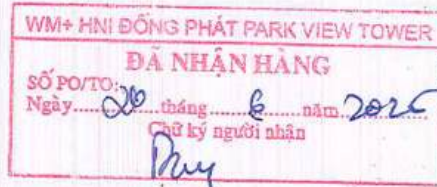 WM+ HNI ĐỒNG PHÁT PARK VIEW TOWER
ĐÃ NHẬN HÀNG
SỐ PO/TO:
Ngày.....20....tháng......6......năm..2025
Chữ ký người nhận
Duy